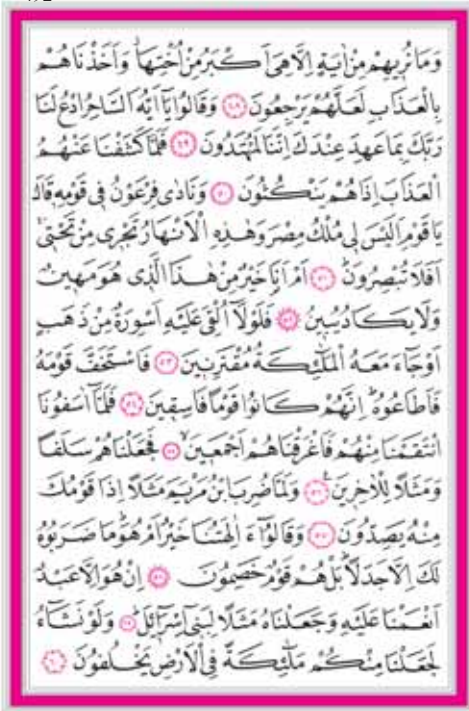 وَمَا نُرِيهِمْ مِنْ اٰيَةٍ اِلَّا هِيَ اَكْبَرُ مِنْ اُخْتِهَا وَاَخَذْنَاهُمْ
بِالْعَذَابِ لَعَلَّهُمْ يَرْجِعُونَ ﴿٤٨﴾ وَقَالُوا يَٓا اَيُّهَ السَّاحِرُ ادْعُ لَنَا
رَبَّكَ بِمَا عَهِدَ عِنْدَكَ اِنَّنَا لَمُهْتَدُونَ ﴿٤٩﴾ فَلَمَّا كَشَفْنَا عَنْهُمُ
الْعَذَابَ اِذَا هُمْ يَنْكُثُونَ ﴿٥٠﴾ وَنَادٰى فِرْعَوْنُ فِي قَوْمِهِ قَالَ
يَا قَوْمِ اَلَيْسَ لِي مُلْكُ مِصْرَ وَهٰذِهِ الْاَنْهَارُ تَجْرِي مِنْ تَحْتِي
اَفَلَا تُبْصِرُونَ ﴿٥١﴾ اَمْ اَنَا خَيْرٌ مِنْ هٰذَا الَّذِي هُوَ مَهِينٌ
وَلَا يَكَادُ يُبِينُ ﴿٥٢﴾ فَلَوْلَٓا اُلْقِيَ عَلَيْهِ اَسْوِرَةٌ مِنْ ذَهَبٍ
اَوْ جَٓاءَ مَعَهُ الْمَلٰٓئِكَةُ مُقْتَرِنِينَ ﴿٥٣﴾ فَاسْتَخَفَّ قَوْمَهُ
فَاَطَاعُوهُ اِنَّهُمْ كَانُوا قَوْمًا فَاسِقِينَ ﴿٥٤﴾ فَلَمَّٓا اٰسَفُونَا
انْتَقَمْنَا مِنْهُمْ فَاَغْرَقْنَاهُمْ اَجْمَعِينَ ﴿٥٥﴾ فَجَعَلْنَاهُمْ سَلَفًا
وَمَثَلًا لِلْاٰخِرِينَ ﴿٥٦﴾ وَلَمَّا ضُرِبَ ابْنُ مَرْيَمَ مَثَلًا اِذَا قَوْمُكَ
مِنْهُ يَصِدُّونَ ﴿٥٧﴾ وَقَالُٓوا ءَاٰلِهَتُنَا خَيْرٌ اَمْ هُوَ مَا ضَرَبُوهُ
لَكَ اِلَّا جَدَلًا بَلْ هُمْ قَوْمٌ خَصِمُونَ ﴿٥٨﴾ اِنْ هُوَ اِلَّا عَبْدٌ
اَنْعَمْنَا عَلَيْهِ وَجَعَلْنَاهُ مَثَلًا لِبَنِٓي اِسْرَٓائِلَ ﴿٥٩﴾ وَلَوْ نَشَٓاءُ
لَجَعَلْنَا مِنْكُمْ مَلٰٓئِكَةً فِي الْاَرْضِ يَخْلُفُونَ ﴿٦٠﴾